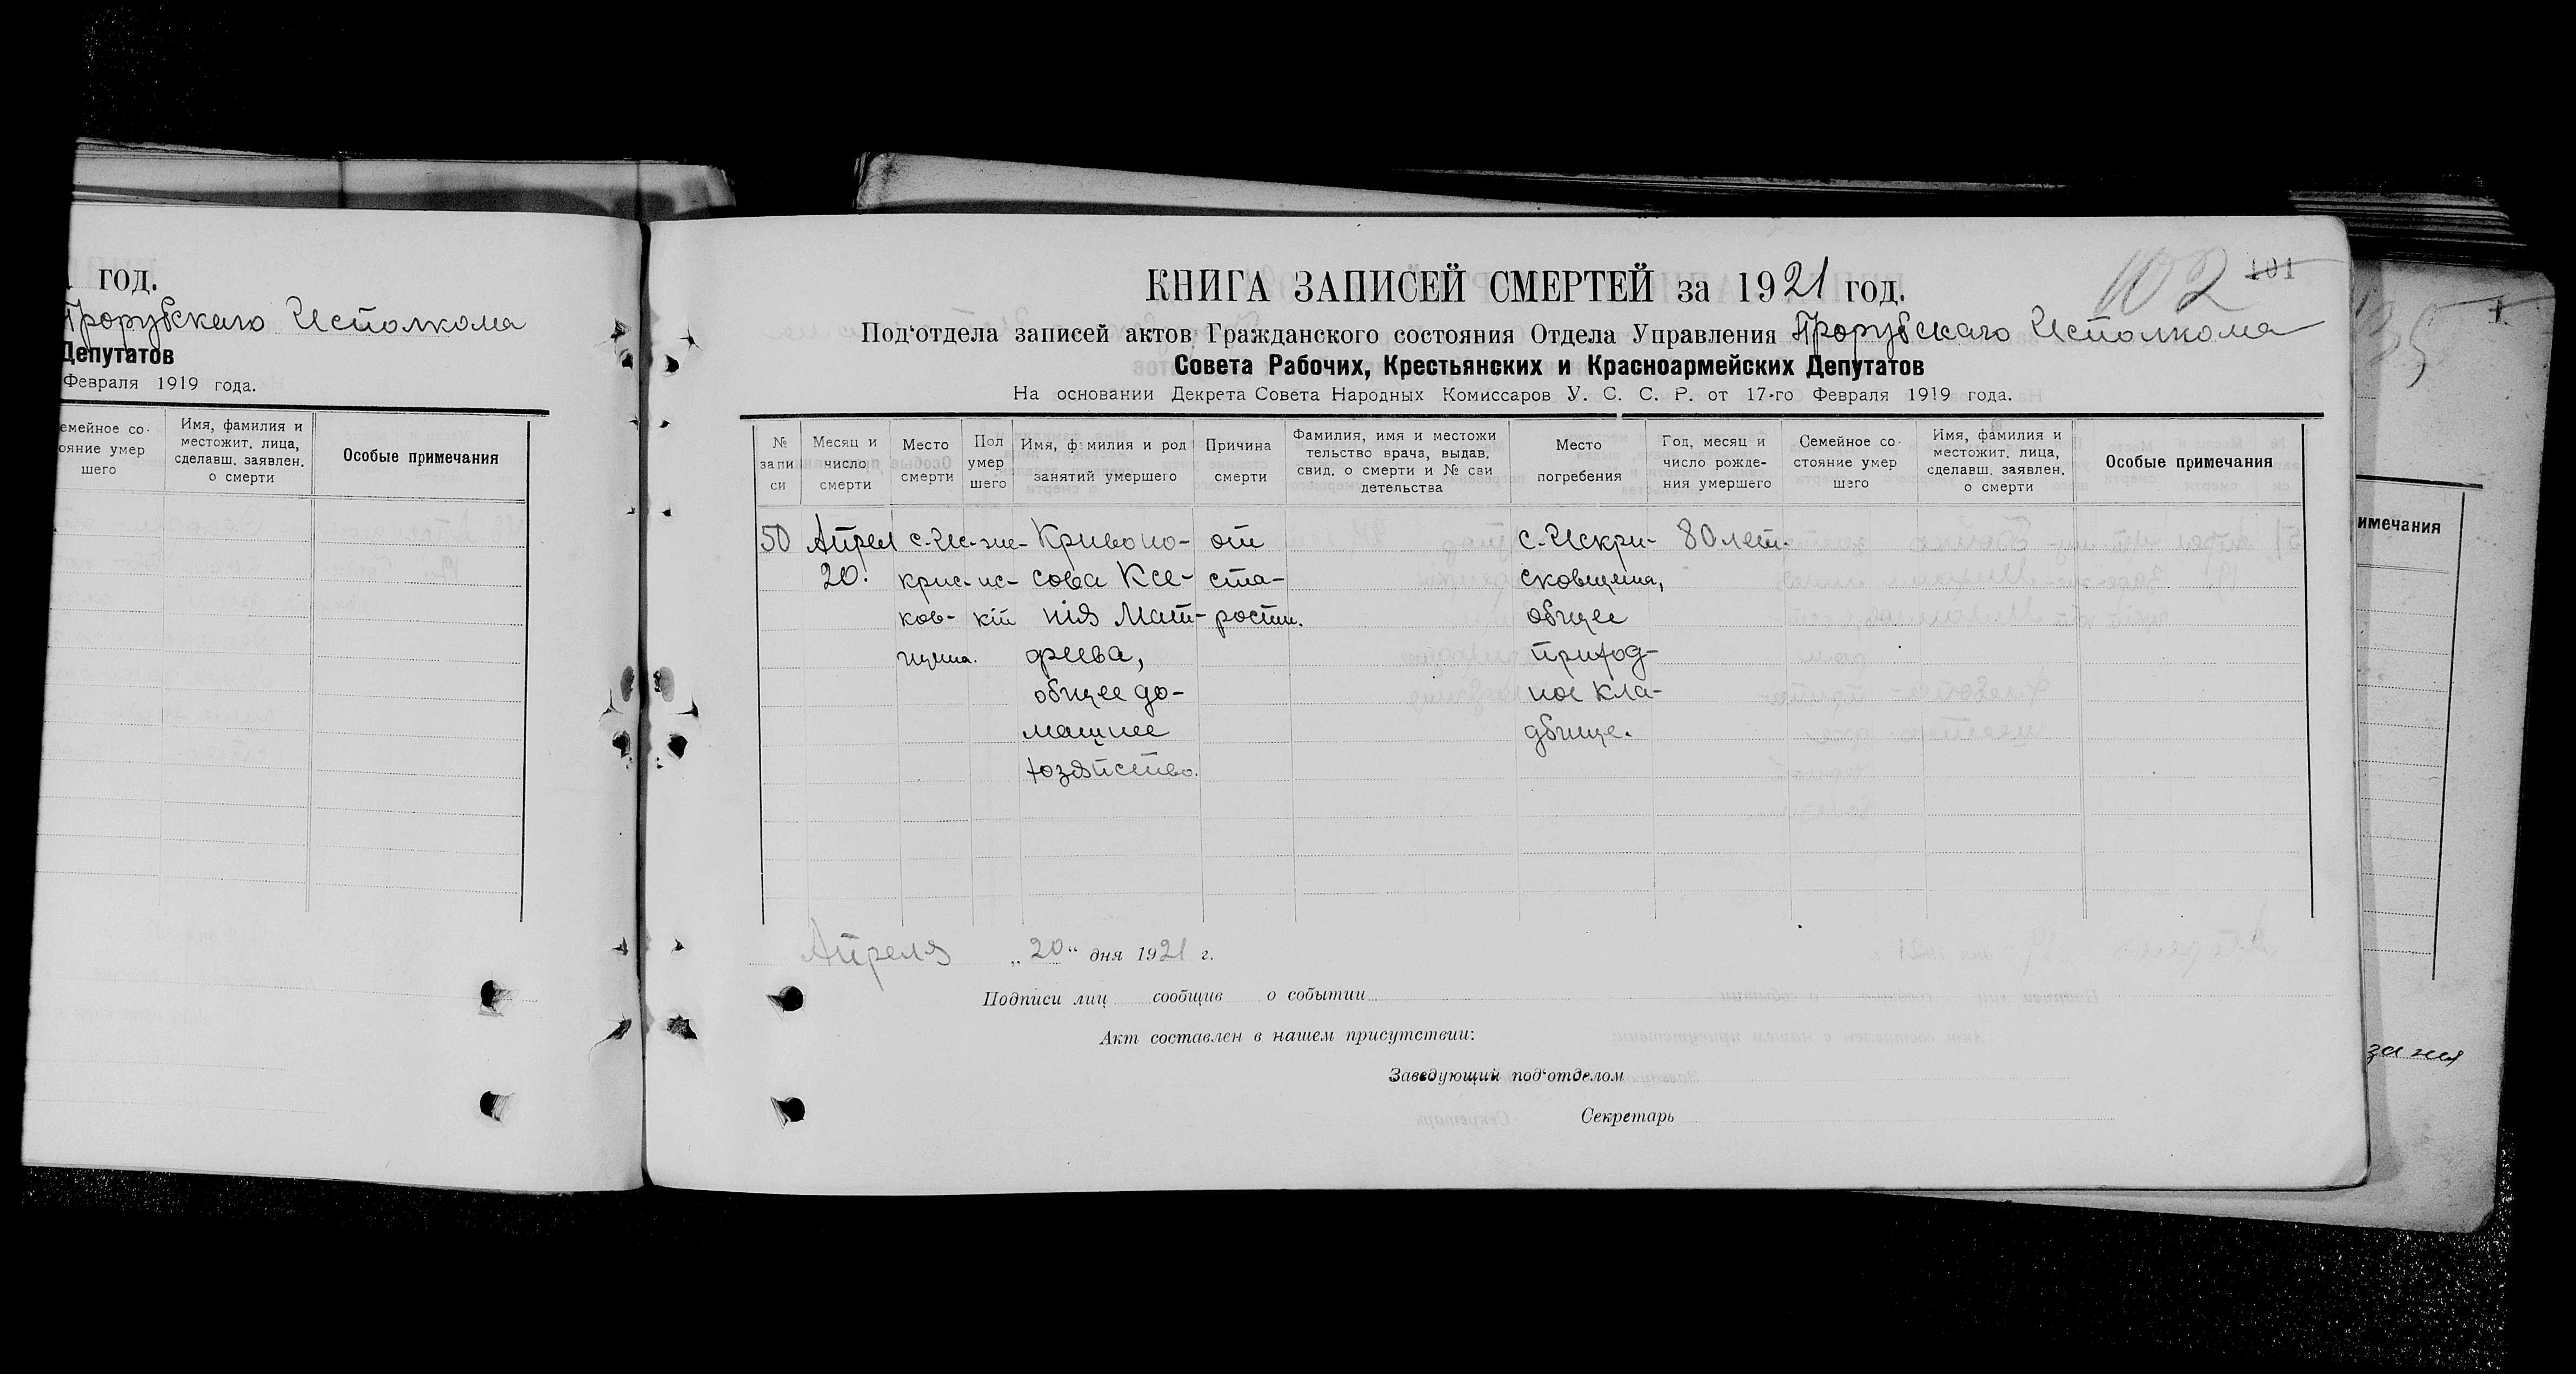 год.
Прорубскаго Исполкома
Депутатов
Февраля 1919 года.
емейное со-
ояние умер
шего
Имя, фамилия и
местожит. лица,
сделавш. заявлен.
о смерти
Особые примечания
102
101
КНИГА ЗАПИСЕЙ СМЕРТЕЙ за 1921 год.
Под‘отдела записей актов Гражданского состояния Отдела Управления Прорубскаго Исполкома
Совета Рабочих, Крестьянских и Красноармейских Депутатов
На основании Декрета Совета Народных Комиссаров У. С. С. Р. от 17-го Февраля 1919 года.
№
запи
си
Месяц и
число
смерти
Место
смерти
Пол
умер
шего
Имя, фамилия и род
занятий умершего
Причина
смерти
Фамилия, имя и местожи
тельство врача, выдав.
свид. о смерти и № сви
детельства
Место
погребения
Год, месяц и
число рожде-
ния умершего
Семейное со-
стояние умер
шего
Имя, фамилия и
местожит. лица,
сделавш. заявлен.
о смерти
Особые примечания
50
Апрел
20.
с. Ис-
крис-
ков-
щина.
же-
нс-
кій
Кривоно-
сова Ксе-
нія Мат-
феева,
общее до-
машнее
хозяйство.
от
ста-
рости.
с. Искри-
сковщина,
общее
приход-
ное кла-
дбище.
80 лет.
Апреля „20“ дня 1921 г.
Подписи лиц сообщив о событии
Акт составлен в нашем присутствии:
Заведующий под‘отделом
Секретарь
135
имечания